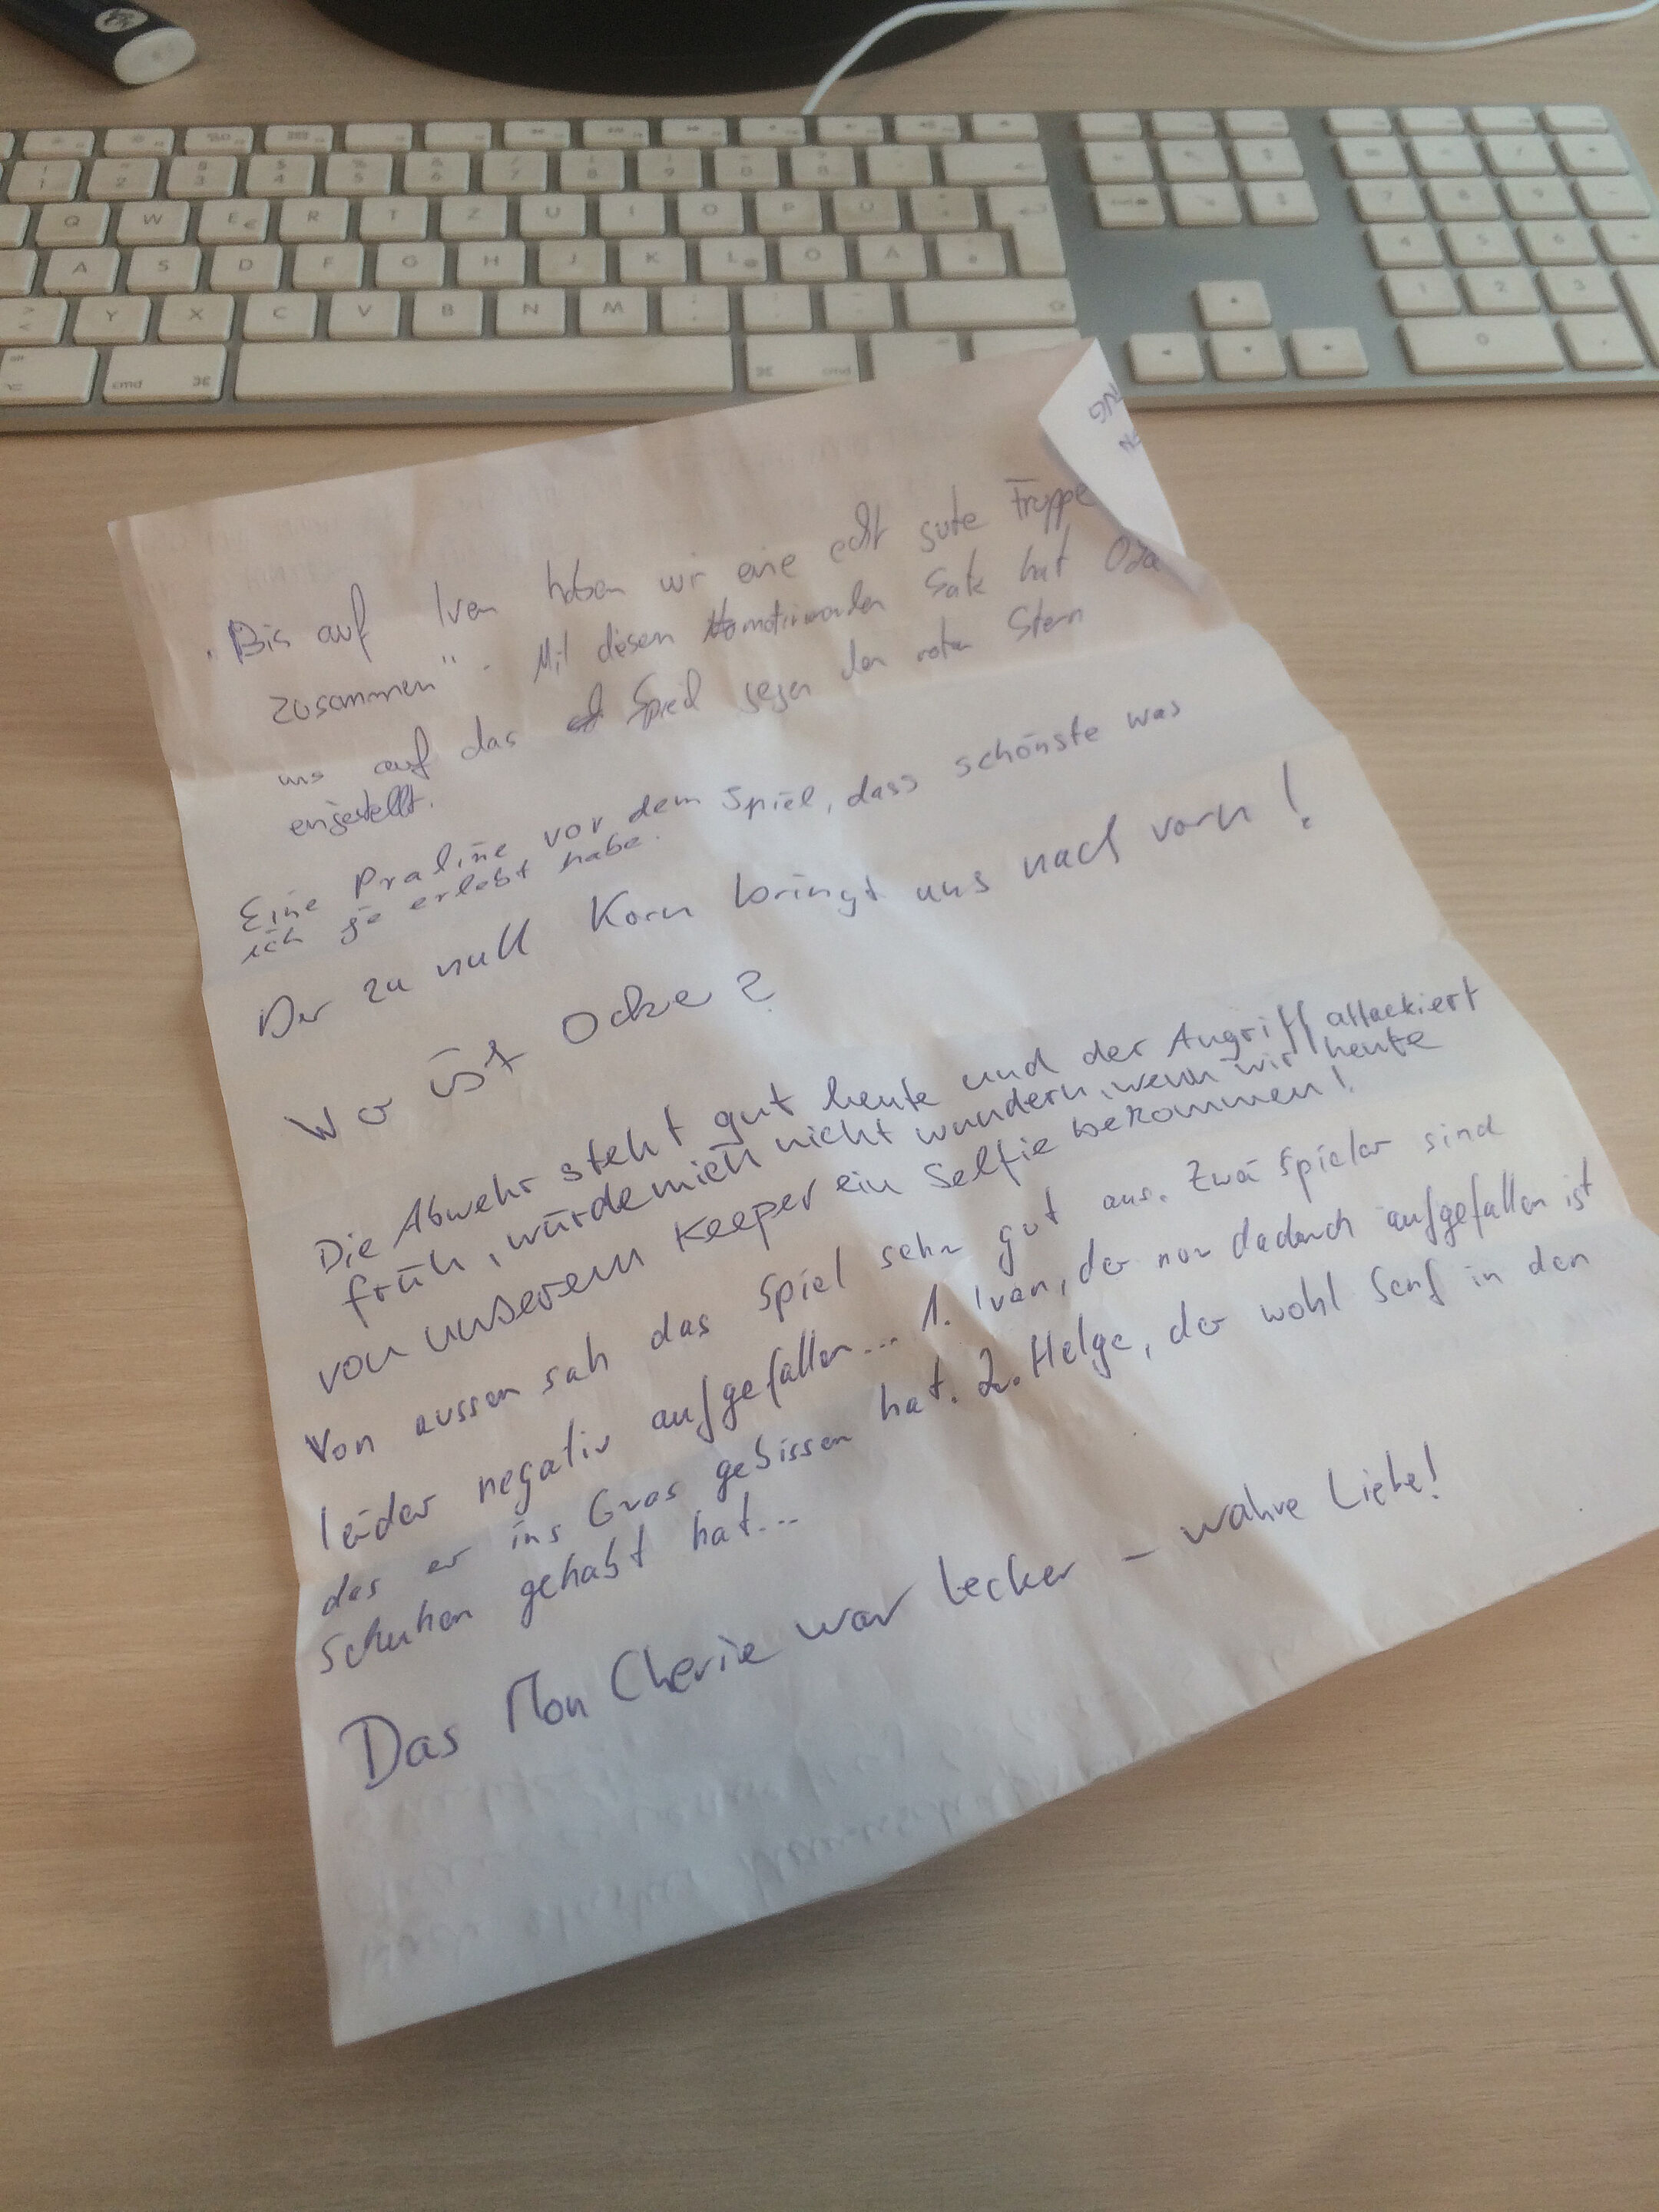 "Bis auf Ivan haben wir eine echt gute Truppe
zusammen". Mit diesem motivierenden Satz hat
uns auf das Spiel gegen den roten Stern
eingestellt.
Eine Praline vor dem Spiel, dass schönste was
ich je erlebt habe.
Der zu null Korn bringt uns nach vorn!
Wo ist Ocke?
Die Abwehr steht gut heute und der Angriff attackiert
früh, würde mich nicht wundern, wenn wir heute
von unserem Keeper ein Selfie bekommen!
Von aussen sah das Spiel sehr gut aus. Zwei Spieler sind
leider negativ aufgefallen... 1. Ivan, der nur dadurch aufgefallen ist
das er ins Gras gebissen hat. 2. Helge, der wohl Senf in den
Schuhen gehabt hat...
Das Mon Cherie war lecker – wahre Liebe!
Q W E € R T Z U I O P Ü
A S D F G H J K L Ö Ä
Y X C V B N M
alt cmd ⌘ ⌘ cmd